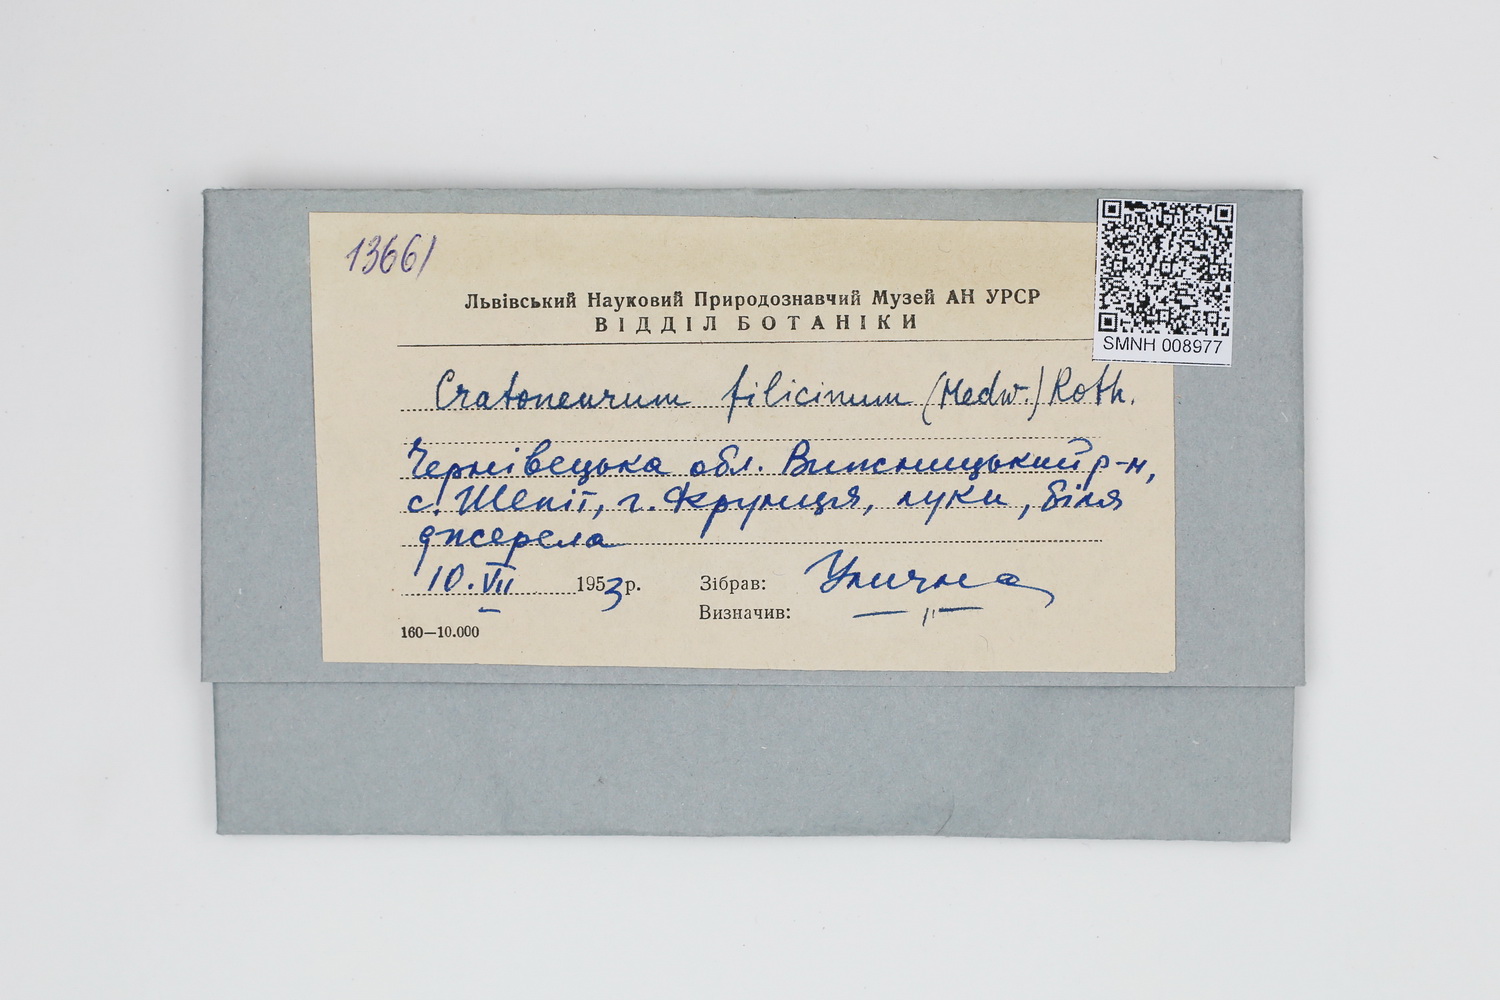 13661
Львівський Науковий Природознавчий Музей АН УРСР
ВІДДІЛ БОТАНІКИ
SMNH 008977
Cratoneurum filicinum (Hedw.) Roth.
Чернівецька обл. Вижницький р-н,
с. Шепіт, г. Круниця, луки, біля
джерела
10.VII 1953 р. Зібрав: Улична
Визначив: —〃—
160—10.000